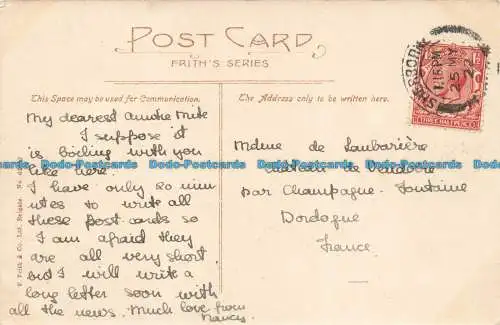 POST CARD
FRITH'S SERIES
This Space may be used for Communication.
The Address only to be written here.
My dearest Auntie
I suppose it
is boiling with you
like here.
I have only 20 min
utes to write all
these post cards so
I am afraid they
are all very short
but I will write a
long letter soon with
all the news. Much love from
Nancy.
Mdme de Laubarière
de
par Champagne. Fontaine
Dordogne
France
F. Frith & Co., Ltd., Reigate. No.
1.15 PM
25 MY
22
THREE HALFPENCE
Dodo-Postcards